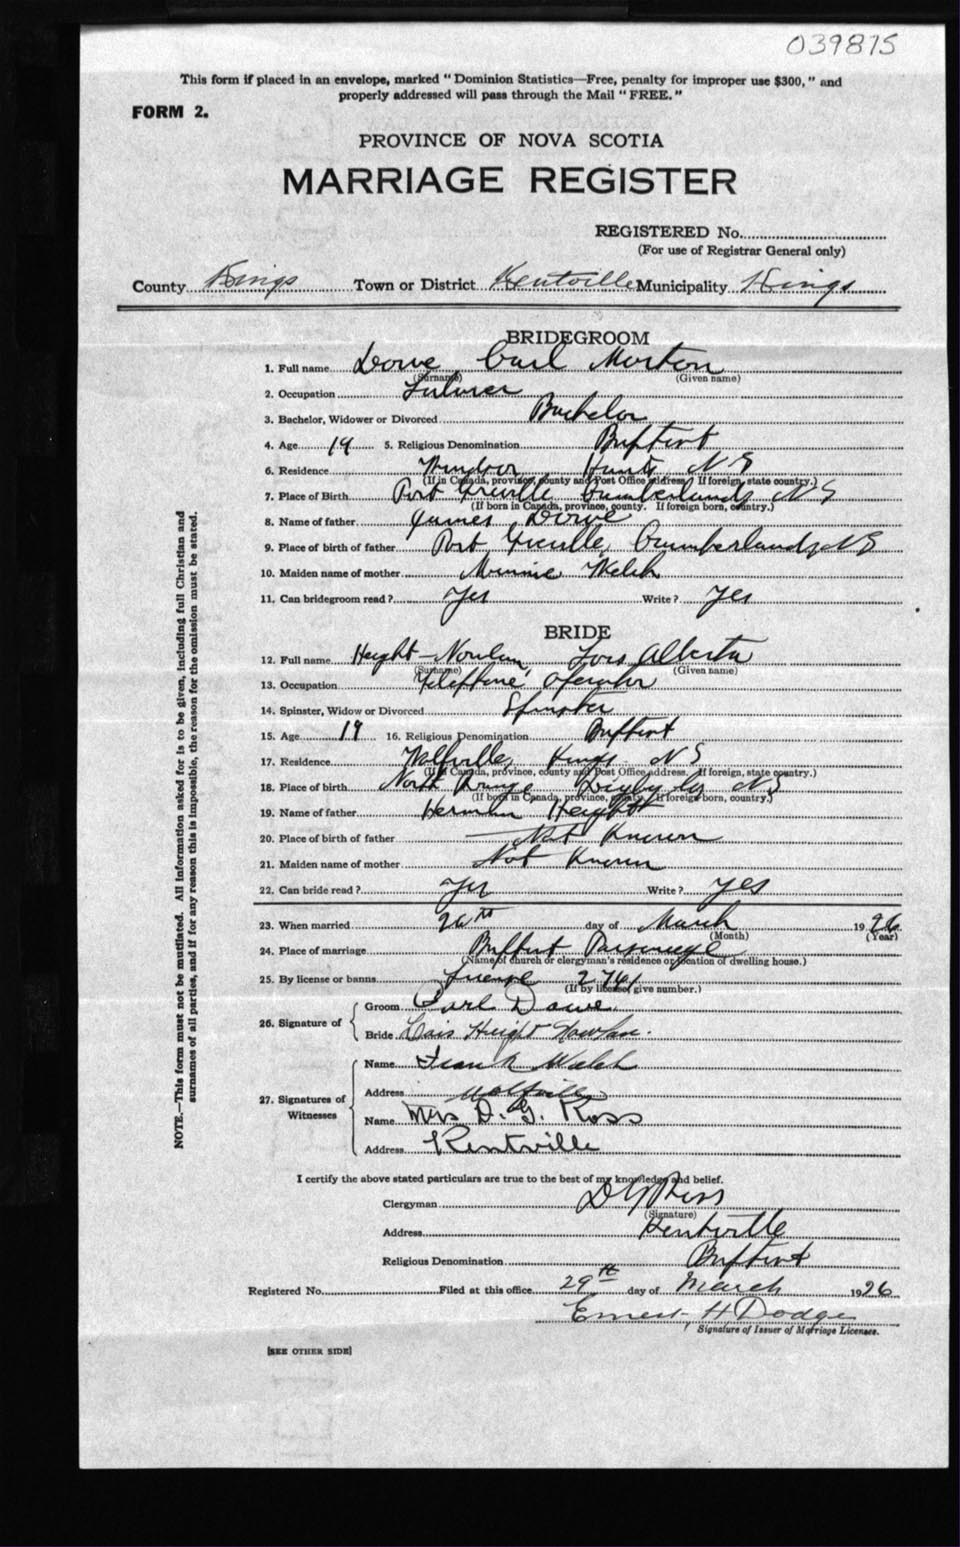 039875
This form if placed in an envelope, marked "Dominion Statistics—Free, penalty for improper use $300," and
properly addressed will pass through the Mail "FREE."
FORM 2.
PROVINCE OF NOVA SCOTIA
MARRIAGE REGISTER
REGISTERED No.
(For use of Registrar General only)
County Kings Town or District Kentville Municipality Kings
BRIDEGROOM
1. Full name Dowe Carl Morton
(Surname) (Given name)
2. Occupation
3. Bachelor, Widower or Divorced Bachelor
4. Age 19 5. Religious Denomination Baptist
6. Residence Windsor Hants NS
(If in Canada, province, county and Post Office address. If foreign, state country.)
7. Place of Birth Port Greville Cumberland NS
(If born in Canada, province, county. If foreign born, country.)
8. Name of father James Dowe
9. Place of birth of father Port Greville, Cumberland NS
10. Maiden name of mother Minnie Welch
11. Can bridegroom read? Yes Write? Yes
BRIDE
12. Full name Height-Nowlan, Lois Alberta
(Surname) (Given name)
13. Occupation Telephone Operator
14. Spinster, Widow or Divorced Spinster
15. Age 19 16. Religious Denomination Baptist
17. Residence Wolfville, Kings NS
(If in Canada, province, county and Post Office address. If foreign, state country.)
18. Place of birth North Range Digby Co NS
(If born in Canada, province, county. If foreign born, country.)
19. Name of father Herman Height
20. Place of birth of father Not Known
21. Maiden name of mother Not Known
22. Can bride read? Yes Write? Yes
23. When married 26th day of March 1926
(Month) (Year)
24. Place of marriage Baptist Parsonage
(Name of church or clergyman's residence or location of dwelling house.)
25. By license or banns License 2761
(If by license, give number.)
26. Signature of Groom Carl Dowe
Bride Lois Height Nowlan.
27. Signatures of Witnesses Name Frank Walsh
Address Wolfville
Name Mrs D. G. Ross
Address Kentville
I certify the above stated particulars are true to the best of my knowledge and belief.
Clergyman D G Ross
(Signature)
Address Kentville
Religious Denomination Baptist
Registered No. Filed at this office 29th day of March 1926
Ernest H Dodge
Signature of Issuer of Marriage Licenses.
[SEE OTHER SIDE]
NOTE.—This form must not be mutilated. All information asked for is to be given, including full Christian and
surnames of all parties, and if for any reason this is impossible, the reason for the omission must be stated.